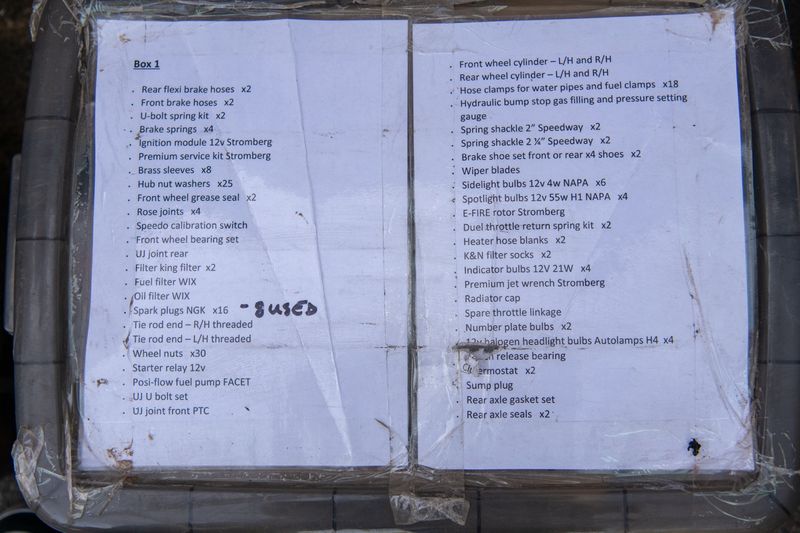 Box 1
. Rear flexi brake hoses x2
. Front brake hoses x2
. U-bolt spring kit x2
. Brake springs x4
. Ignition module 12v Stromberg
. Premium service kit Stromberg
. Brass sleeves x8
. Hub nut washers x25
. Front wheel grease seal x2
. Rose joints x4
. Speedo calibration switch
. Front wheel bearing set
. UJ joint rear
. Filter king filter x2
. Fuel filter WIX
. Oil filter WIX
. Spark plugs NGK x16 - 8 USED
. Tie rod end – R/H threaded
. Tie rod end – L/H threaded
. Wheel nuts x30
. Starter relay 12v
. Posi-flow fuel pump FACET
. UJ U bolt set
. UJ joint front PTC
. Front wheel cylinder – L/H and R/H
. Rear wheel cylinder – L/H and R/H
. Hose clamps for water pipes and fuel clamps x18
. Hydraulic bump stop gas filling and pressure setting
gauge
. Spring shackle 2” Speedway x2
. Spring shackle 2 ¼” Speedway x2
. Brake shoe set front or rear x4 shoes x2
. Wiper blades
. Sidelight bulbs 12v 4w NAPA x6
. Spotlight bulbs 12v 55w H1 NAPA x4
. E-FIRE rotor Stromberg
. Duel throttle return spring kit x2
. Heater hose blanks x2
. K&N filter socks x2
. Indicator bulbs 12V 21W x4
. Premium jet wrench Stromberg
. Radiator cap
. Spare throttle linkage
. Number plate bulbs x2
. 12v halogen headlight bulbs Autolamps H4 x4
. release bearing
. x2
. Sump plug
. Rear axle gasket set
. Rear axle seals x2